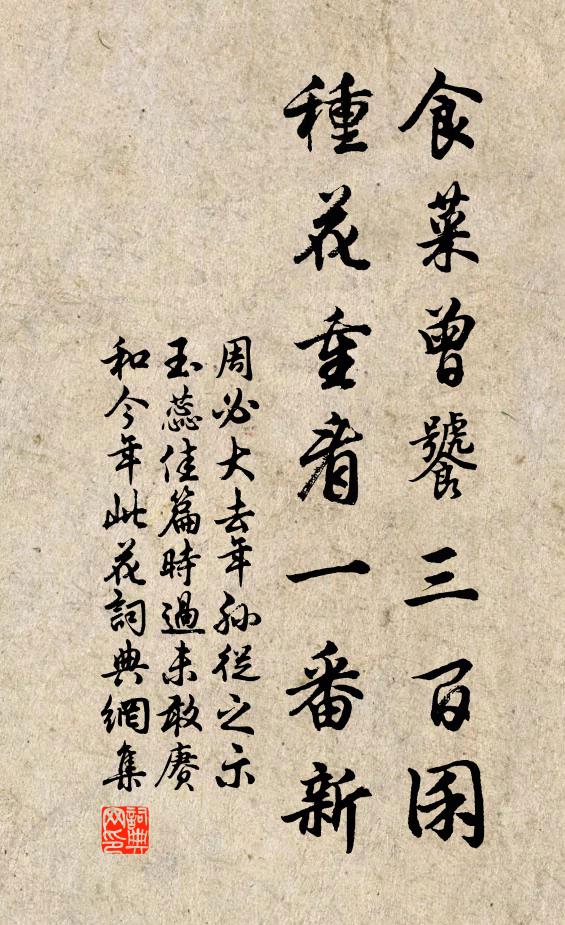 食菜曾饕三百囷
種花重看一番新
周必大去年孫從之示
玉蕊佳篇時過未敢賡
和今年此花詞典網集
詞典網印